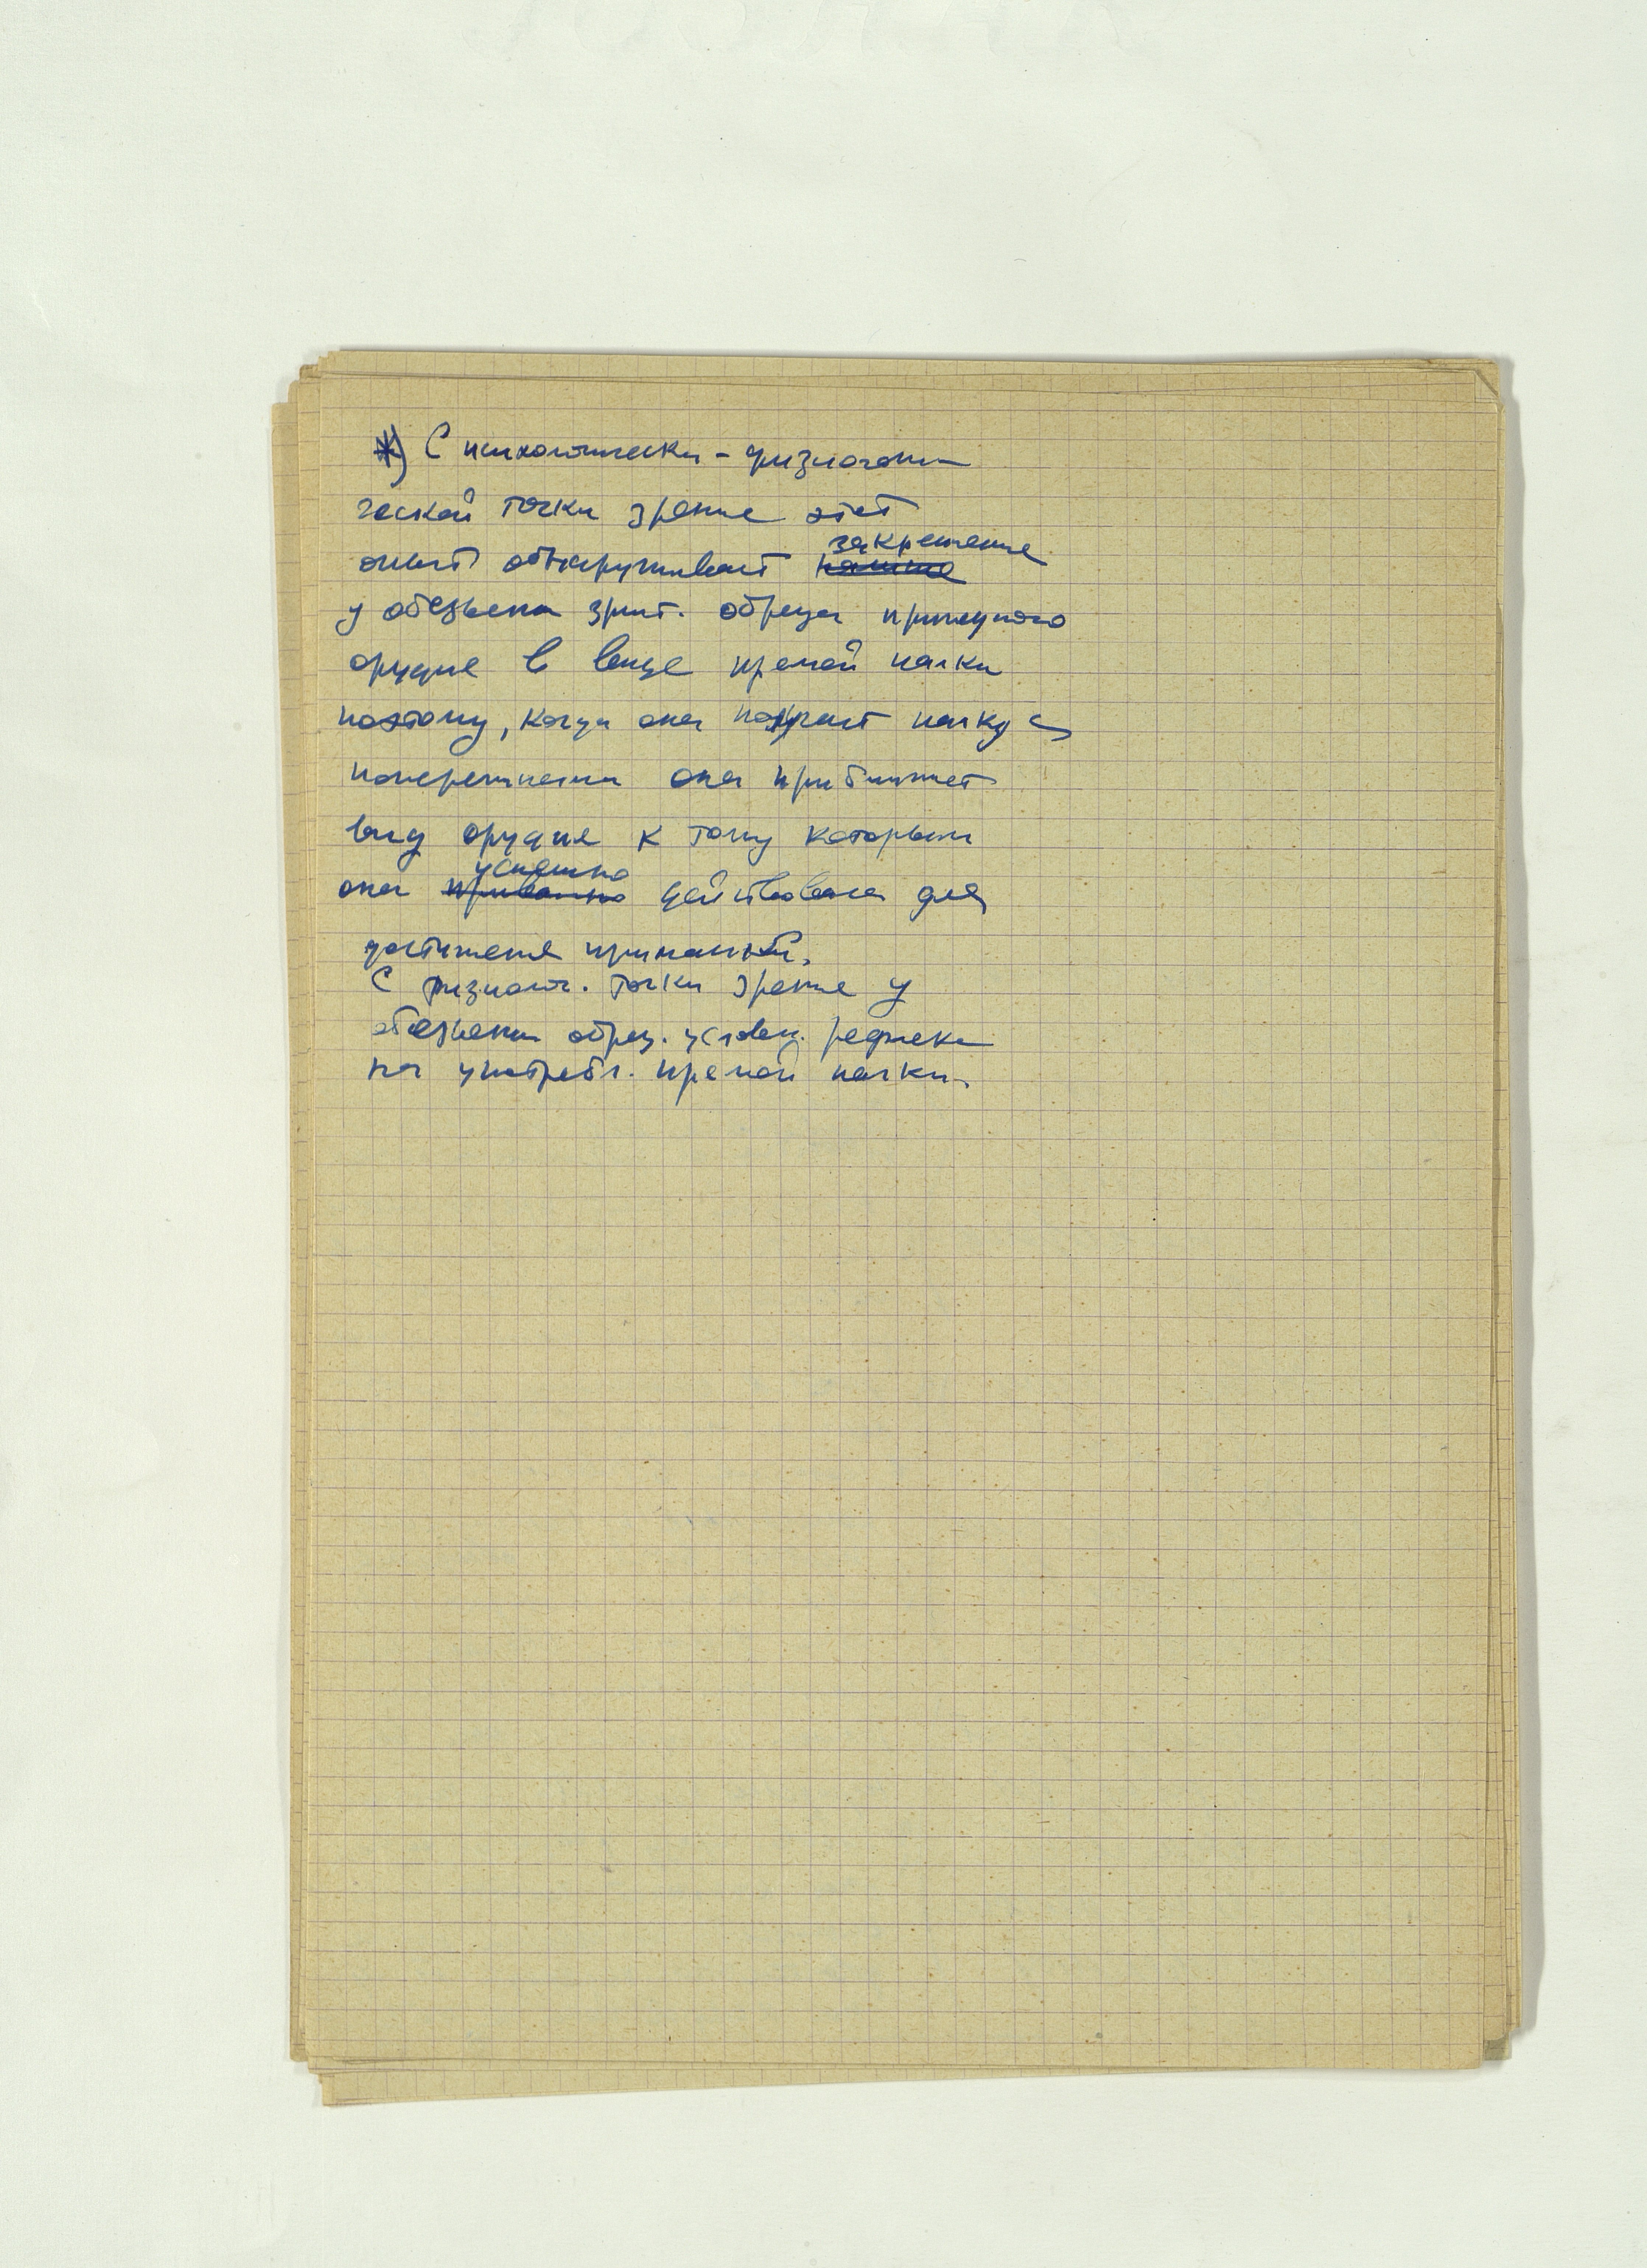 ж) С психологически-физиологи-
ческой точки зрения этот
опыт обнаруживает закрепление
у обезьяны зрит. образа пригодного
орудия в виде прямой палки
поэтому, когда она палку с
она приближает
вид орудия к тому которым
она успешно действовала для
достижения приманки.
С физиолог. точки зрения у
обезьяны образ. условн. рефлекс
на употребл. прямой палки.